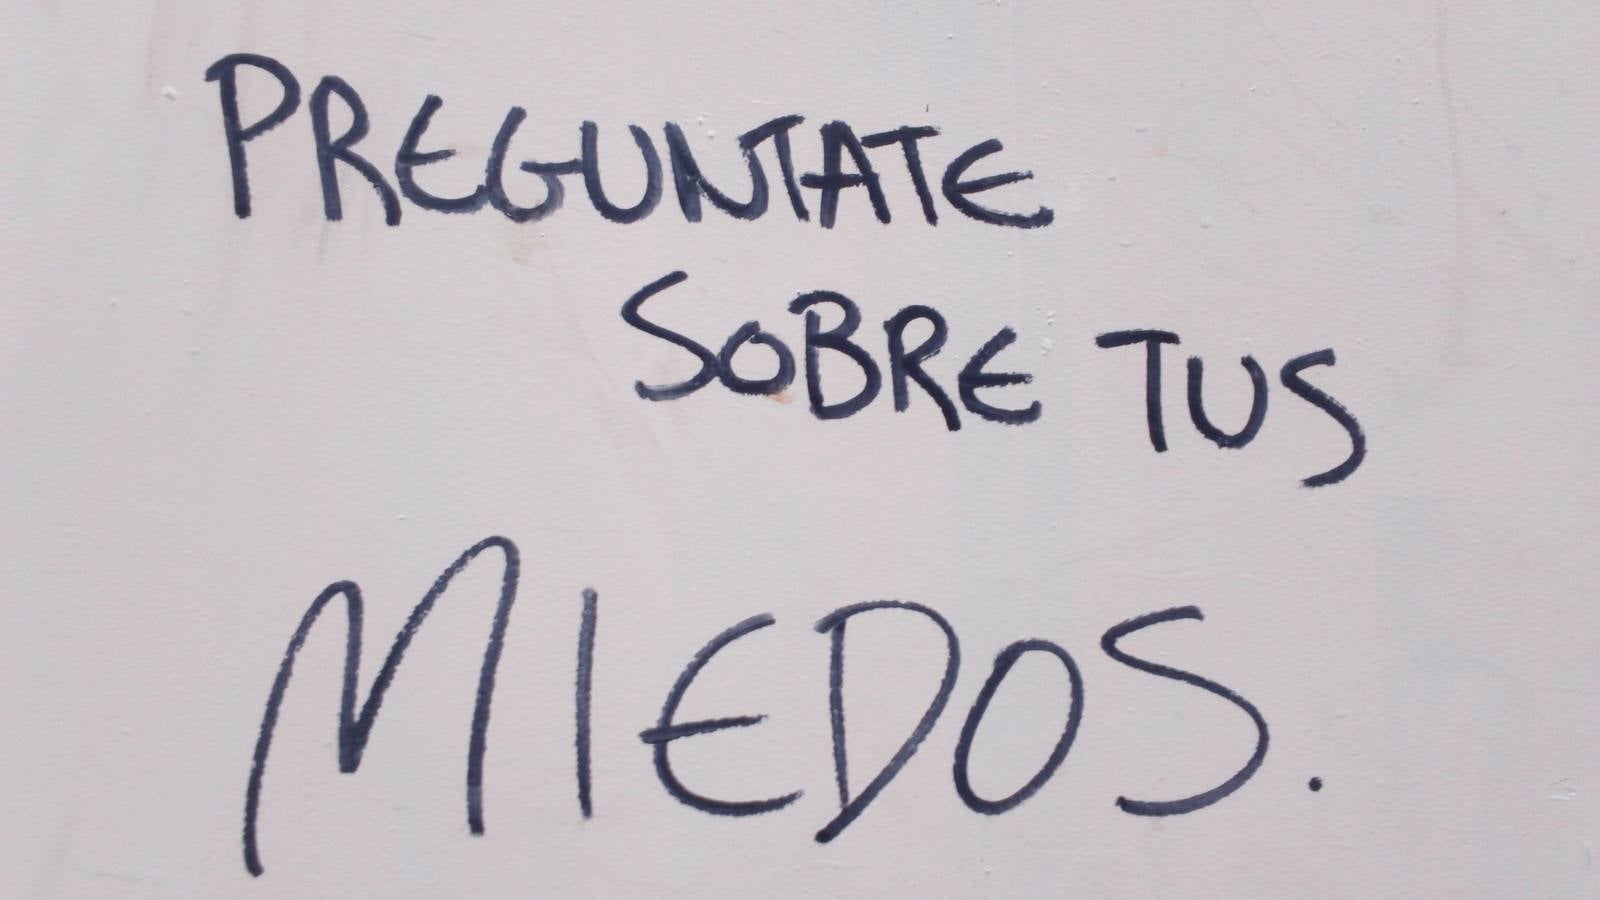 PREGUNTATE
SOBRE TUS
MIEDOS.